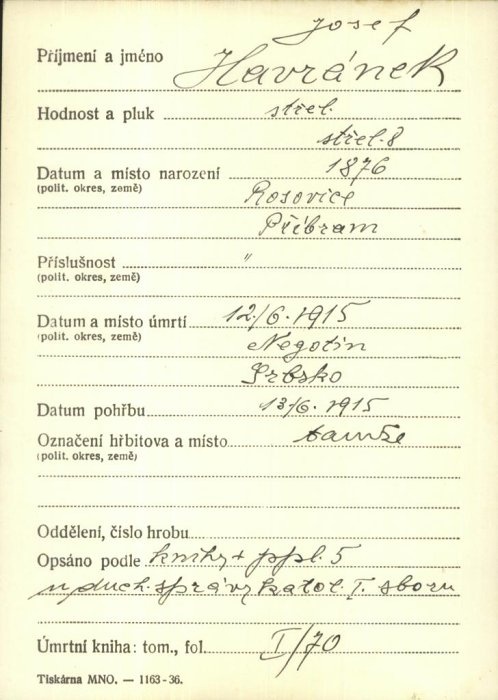 Josef
Příjmení a jméno Havránek
Hodnost a pluk střel.
střel. 8
Datum a místo narození 1876
(polit. okres, země) Rosovice
Příbram
Příslušnost "
(polit. okres, země)
Datum a místo úmrtí 12/6. 1915
(polit. okres, země) Negotin
Srbsko
Datum pohřbu 13/6. 1915
Označení hřbitova a místo tamže
(polit. okres, země)
Oddělení, číslo hrobu
Opsáno podle knihy + ppl. 5
u duch. správy katol. I. sboru
Úmrtní kniha: tom., fol. I/70
Tiskárna MNO. — 1163-36.